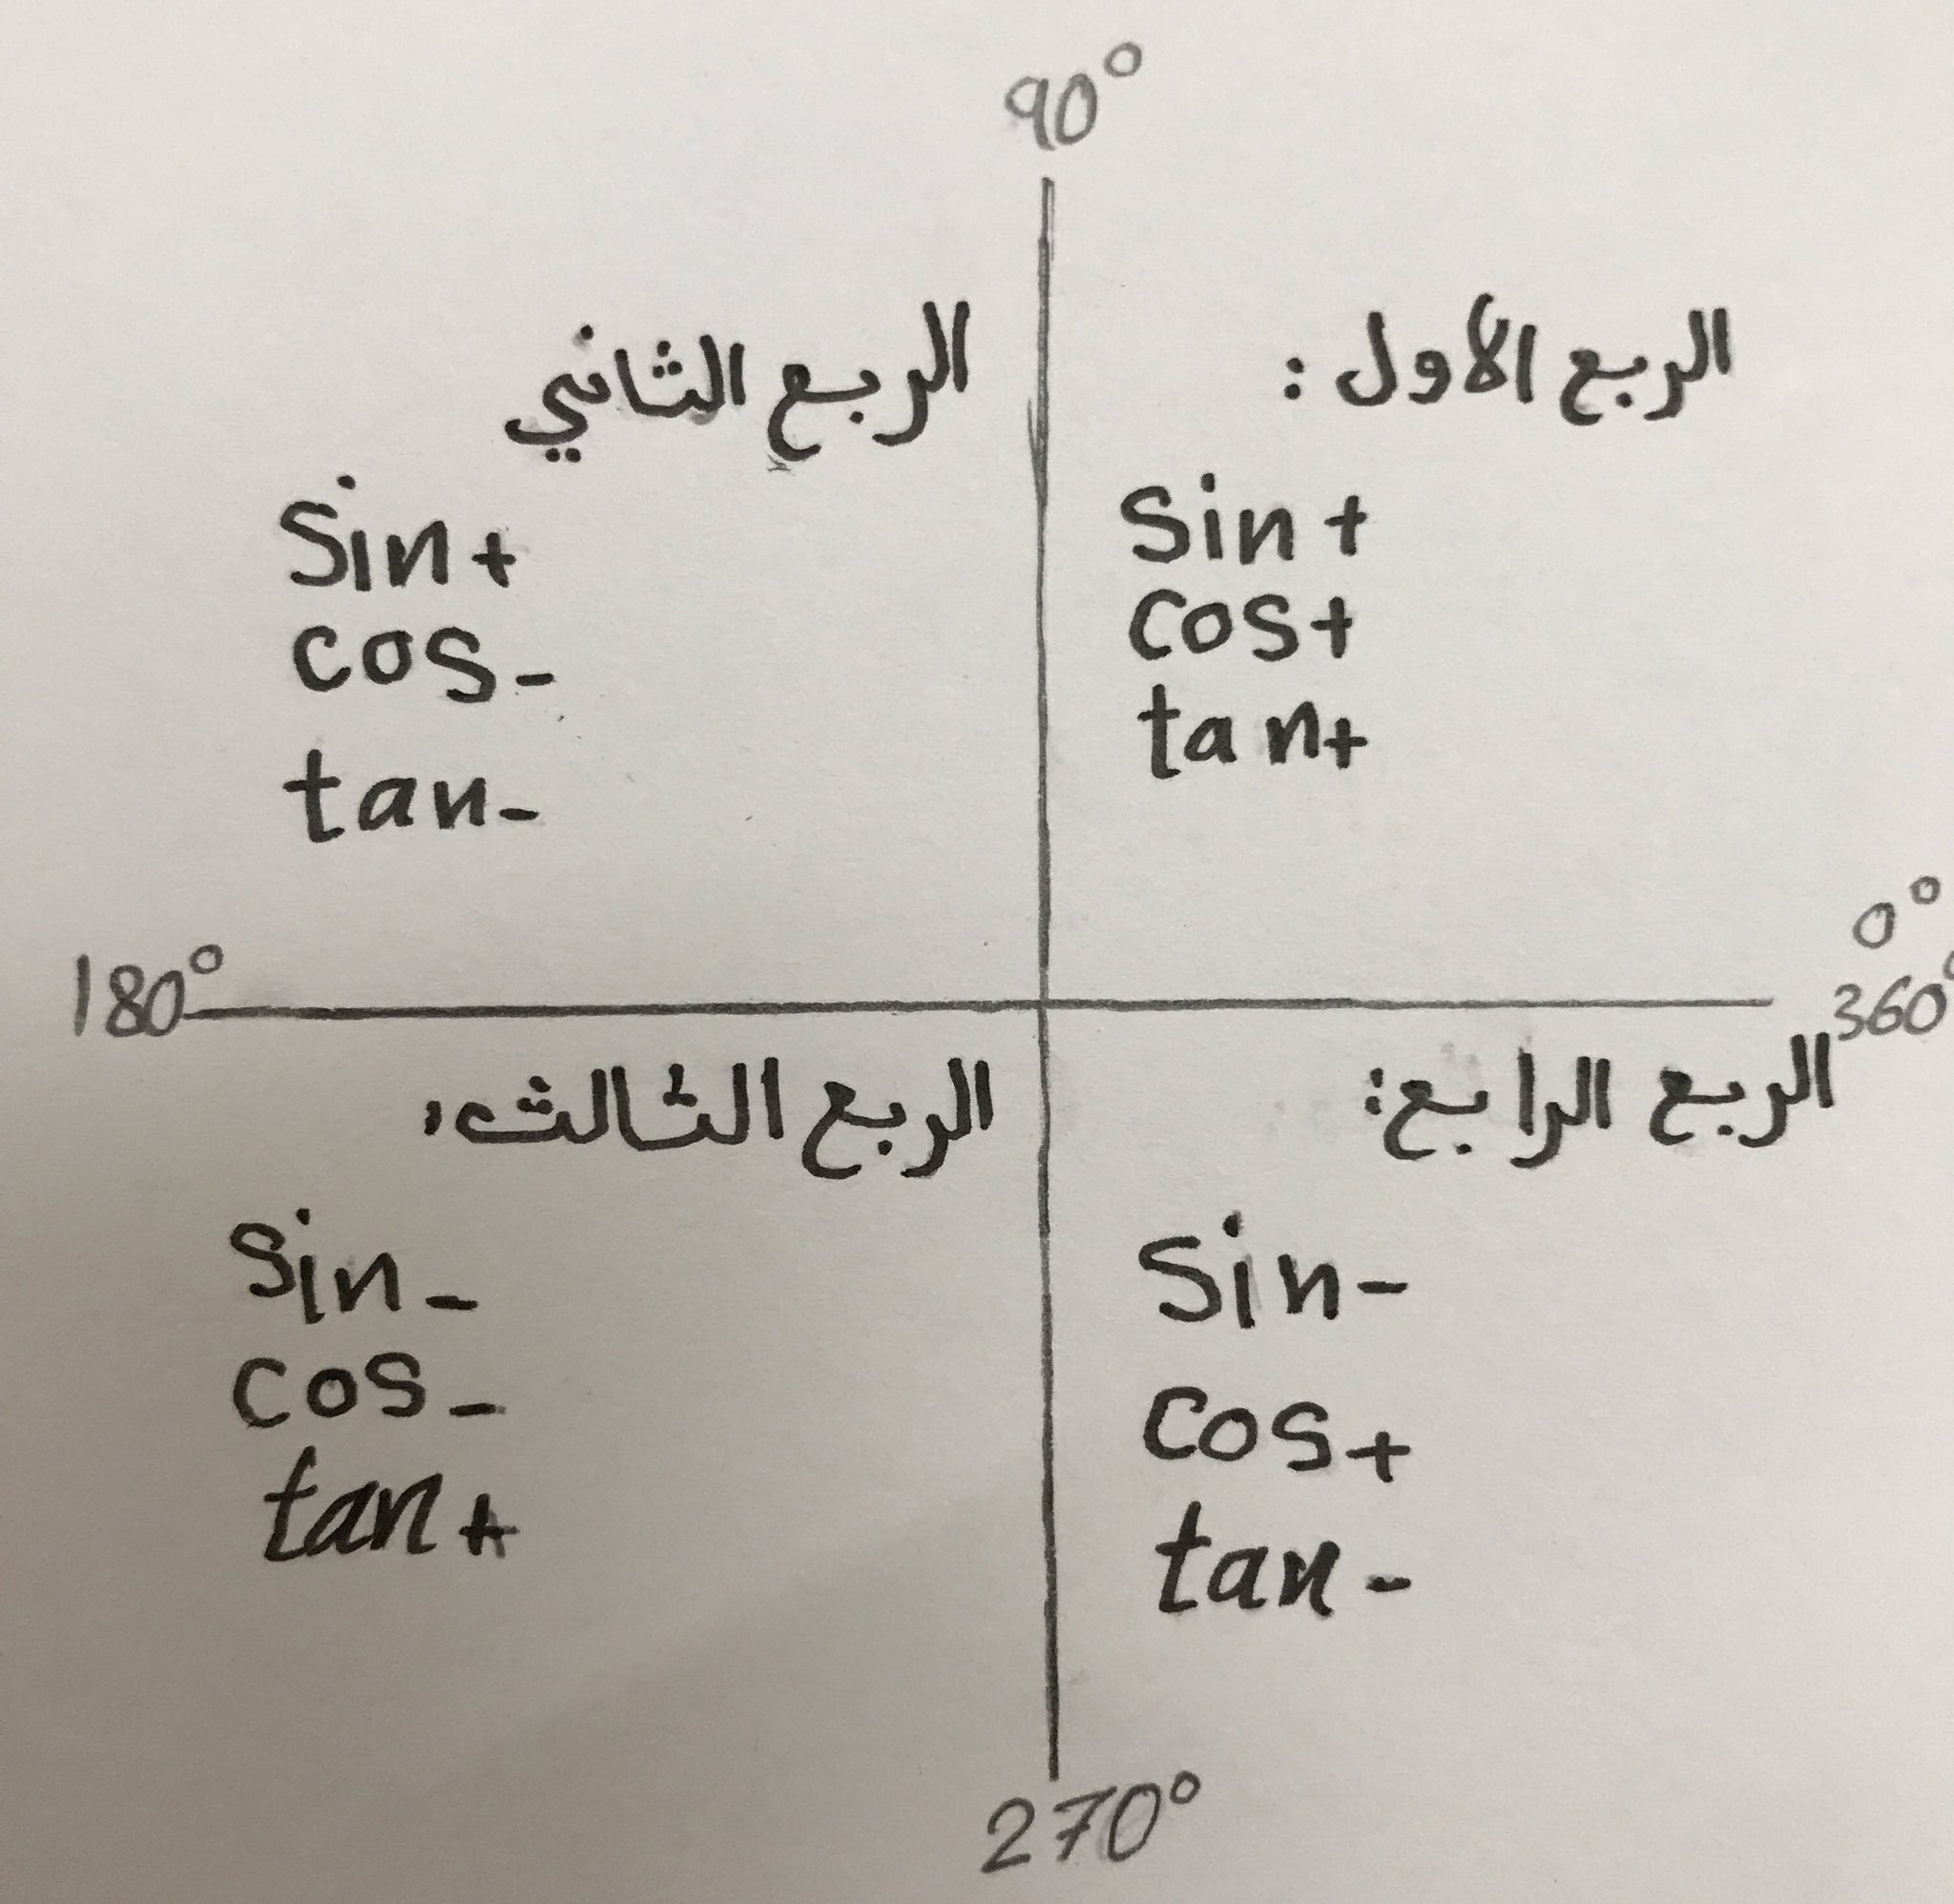 90°
الربع الأول :
sin +
cos +
tan +
الربع الثاني
sin +
cos -
tan -
0°
360°
180°
الربع الثالث:
sin -
cos -
tan +
الربع الرابع:
sin -
cos +
tan -
270°